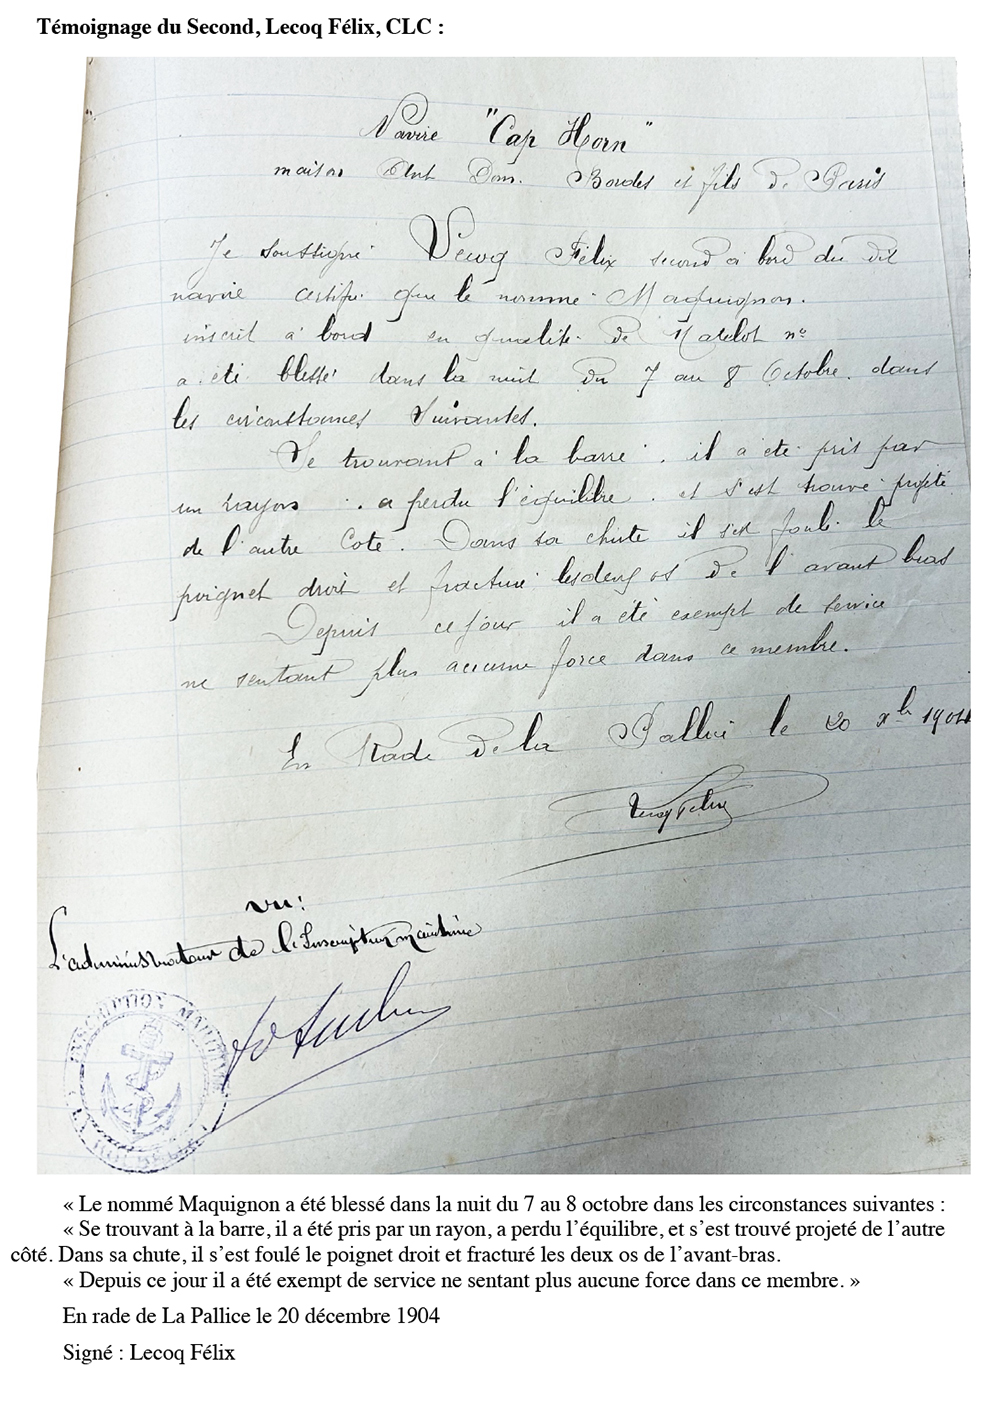 Témoignage du Second, Lecoq Félix, CLC :
Navire "Cap Horn"
maison Ant Dom. Bordes et fils de Paris
Je soussigné Lecoq Félix second à bord du dit
navire certifie que le nommé Maquignon.
inscrit à bord en qualité de Matelot n°
a été blessé dans la nuit du 7 au 8 Octobre. dans
les circonstances suivantes.
Se trouvant à la barre. il a été pris par
un rayon. a perdu l'équilibre. et s'est trouvé projeté
de l'autre coté. Dans sa chute il s'est foulé le
poignet droit et fracturé les deux os de l'avant bras
Depuis ce jour il a été exempt de service
ne sentant plus aucune force dans ce membre.
En Rade de la Pallice le 20 Xbre 1904
Lecoq Félix
vu:
L'administrateur de l'Inscription maritime
INSCRIPTION MARITIME
« Le nommé Maquignon a été blessé dans la nuit du 7 au 8 octobre dans les circonstances suivantes :
« Se trouvant à la barre, il a été pris par un rayon, a perdu l’équilibre, et s’est trouvé projeté de l’autre
côté. Dans sa chute, il s’est foulé le poignet droit et fracturé les deux os de l’avant-bras.
« Depuis ce jour il a été exempt de service ne sentant plus aucune force dans ce membre. »
En rade de La Pallice le 20 décembre 1904
Signé : Lecoq Félix